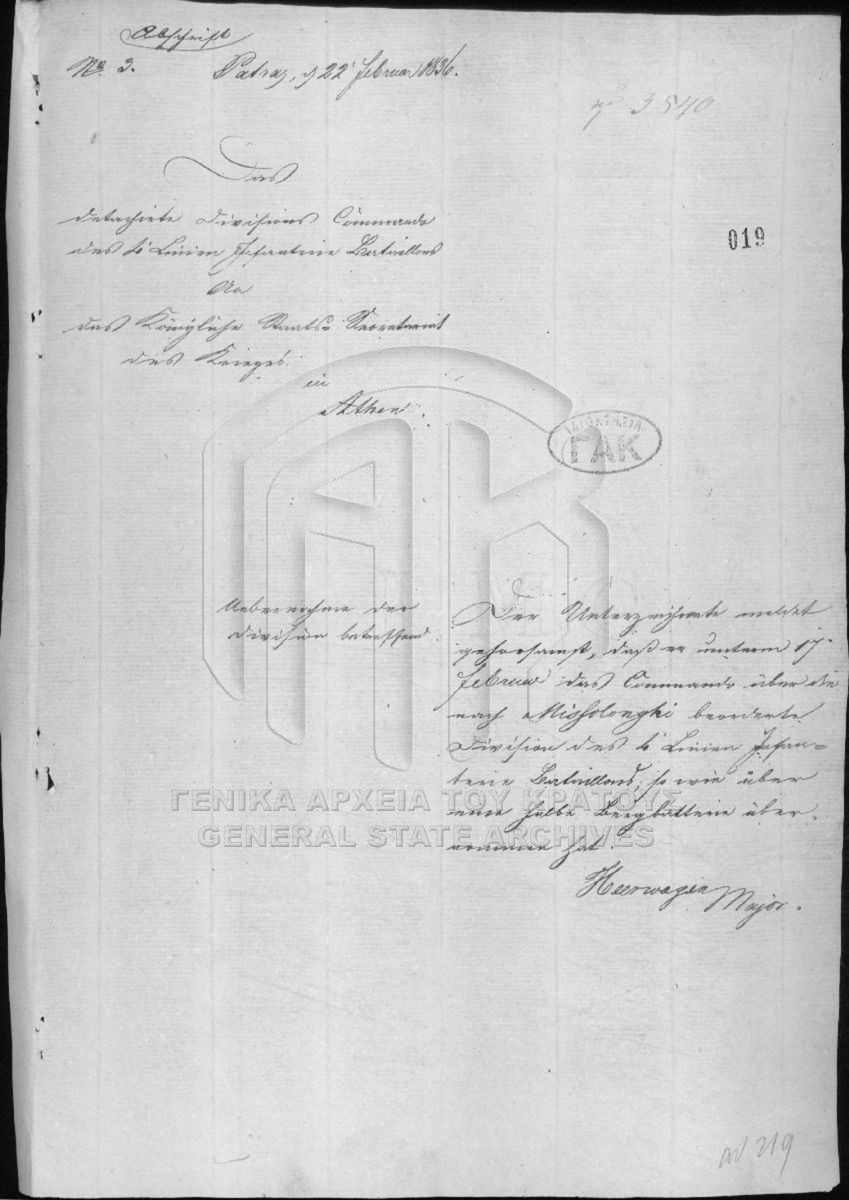 Abschrift
No. 3. Patras, d 22 Februar 1836.
No 3540
Das
detachirte Divisions Commando
des 4t Linien Infanterie Bataillons
An
das Königliche Staats-Secretariat
des Krieges
in
Athen.
019
ΙΔΙΟΚΤΗΣΙΑ
ΓΑΚ
Uebernahme der
Division betreffend
Der Unterzeichnete meldet
gehorsamst, daß er unterm 17
Februar das Commando über die
nach Missolonghi beorderte
Division des 4t Linien Infan=
terie Bataillons, so wie über
eine halbe Bergbatterie über=
nommen hat.
Heerwagen
Major.
ΓΕΝΙΚΑ ΑΡΧΕΙΑ ΤΟΥ ΚΡΑΤΟΥΣ
GENERAL STATE ARCHIVES
ad 219